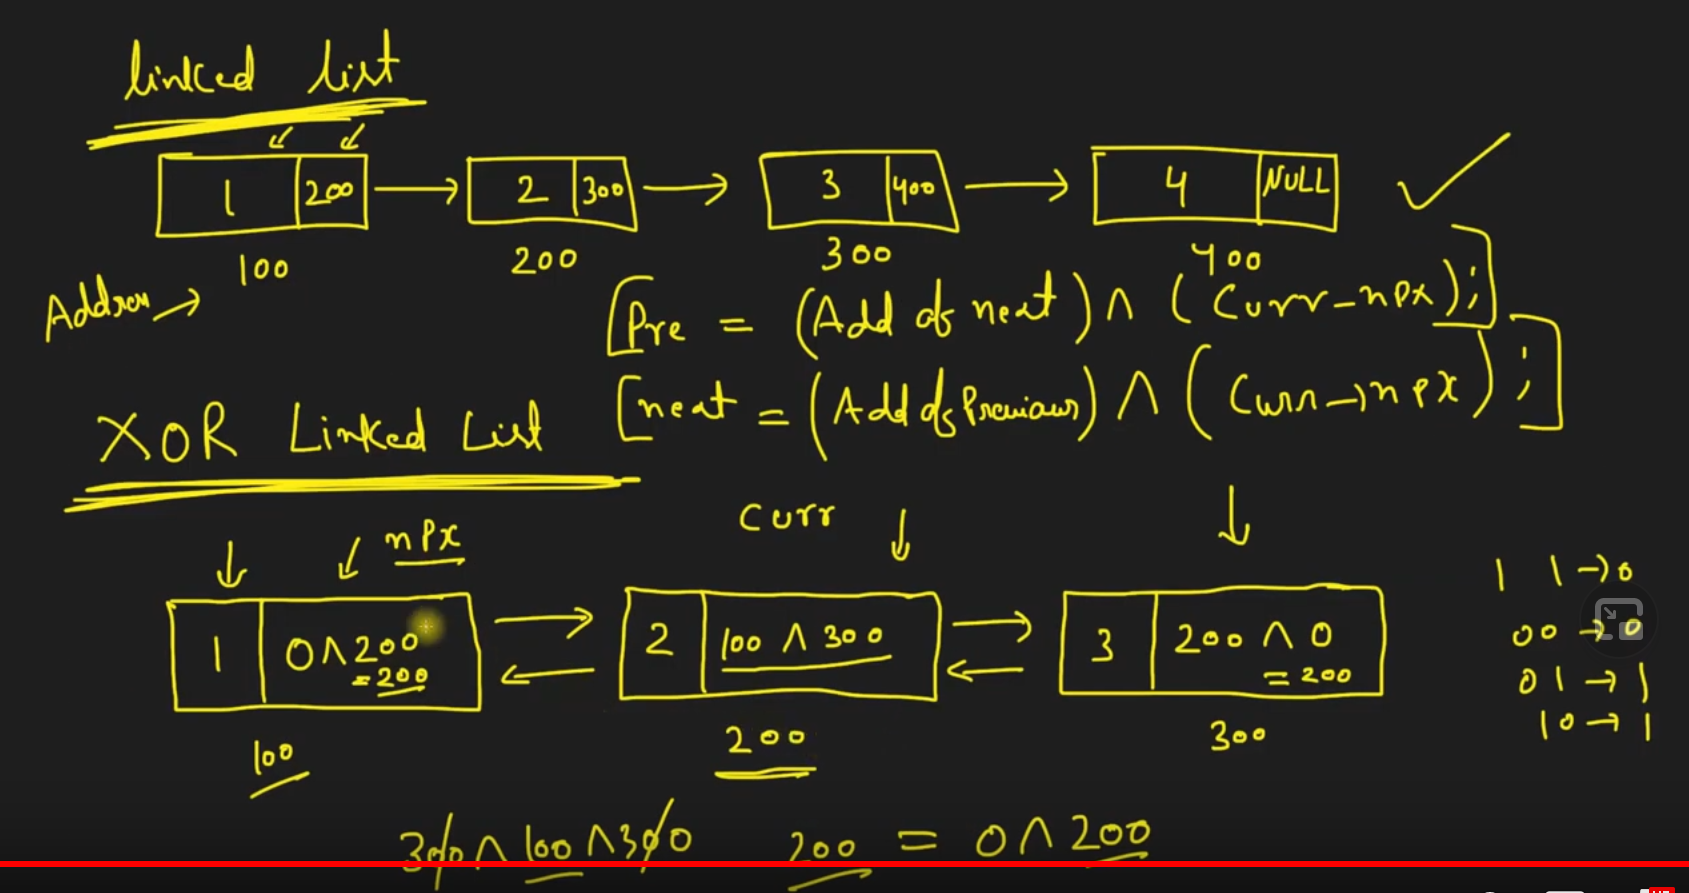 linked list
1 200 → 2 300 → 3 400 → 4 NULL
100 200 300 400
Address →
[Pre = (Add of next) ∧ (Curr-npx);]
[next = (Add of Previous) ∧ (Curr→npx);]
XOR Linked List
Curr
npx
1 0∧200 = 200
2 100 ∧ 300
3 200 ∧ 0 = 200
100 200 300
1 1 → 0
00 → 0
01 → 1
10 → 1
300 ∧ 100 ∧ 300 200 = 0 ∧ 200